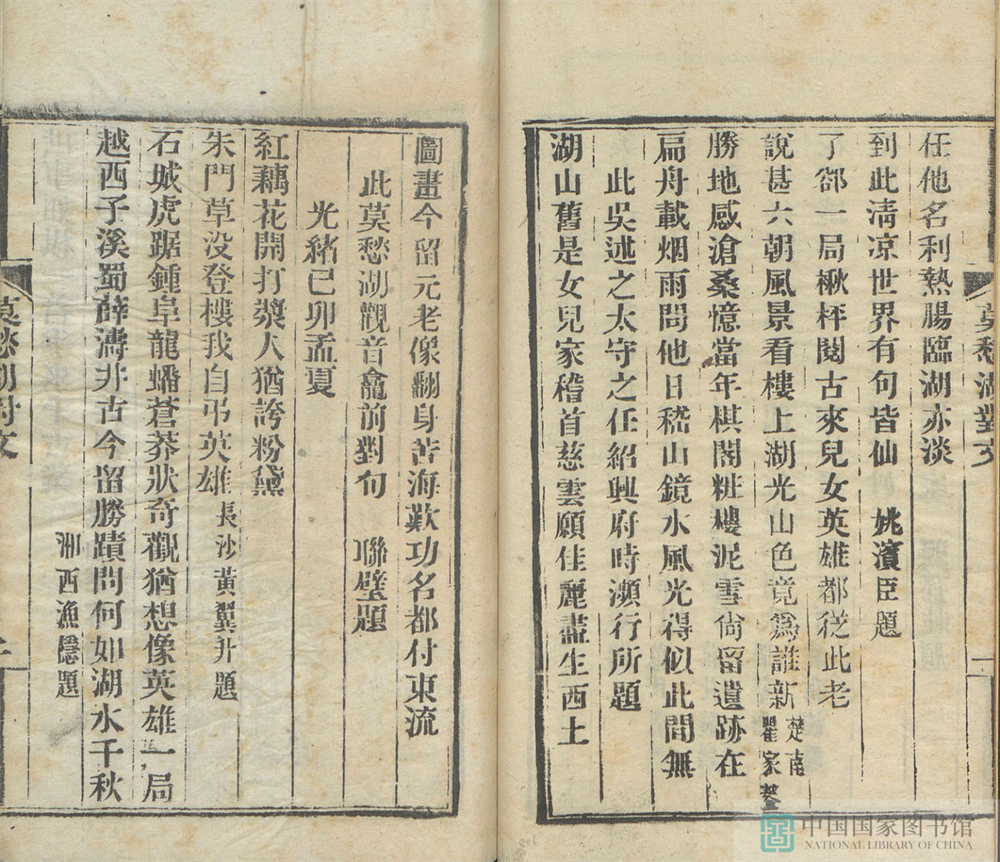 任他名利熱腸臨湖亦淡
到此清凉世界有句皆仙 姚濱臣題
了卻一局楸枰閱古來兒女英雄都從此老
說甚六朝風景看樓上湖光山色竟爲誰新 楚南瞿家鏊
勝地感滄桑憶當年棋閣粧樓泥雪尙留遺跡在
扁舟載烟雨問他日嵇山鏡水風光得似此間無
此吳述之太守之任紹興府時瀕行所題
湖山舊是女兒家稽首慈雲願佳麗盡生西土
圖畫今留元老像翻身苦海歎功名都付東流
此莫愁湖觀音龕前對句 聯璧題
光緒己卯孟夏
紅藕花開打槳人猶誇粉黛
朱門草没登樓我自弔英雄 長沙黃翼升題
石城虎踞鍾阜龍蟠蒼莽狀奇觀猶想像英雄一局
越西子溪蜀薛濤井古今留勝蹟問何如湖水千秋
浙西漁隱題
莫愁湖對文
一
莫愁湖對文
中国国家图书馆
NATIONAL LIBRARY OF CHINA